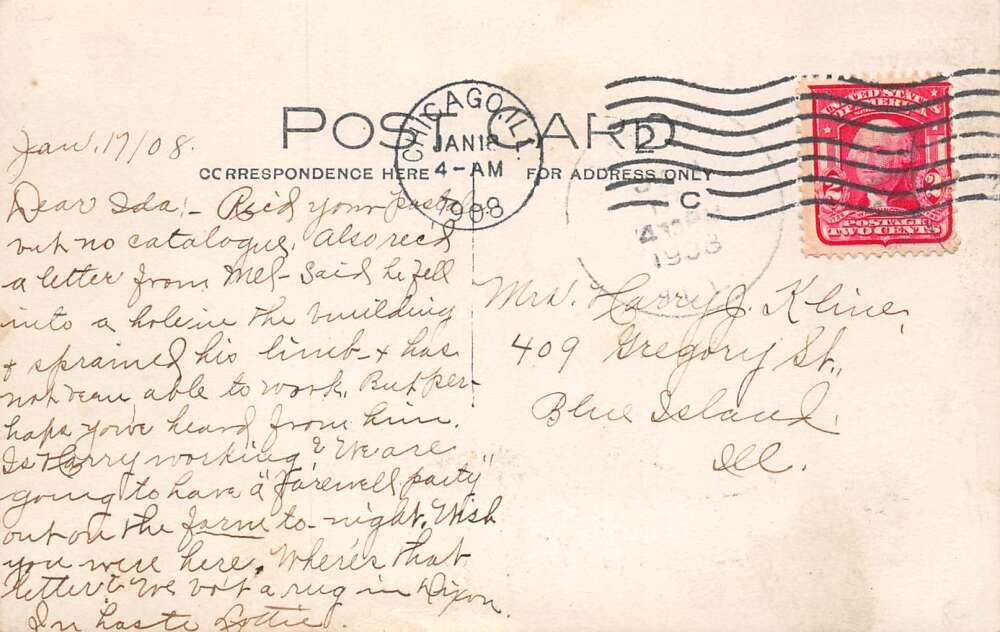 POST CARD
CORRESPONDENCE HERE
FOR ADDRESS ONLY
CHICAGO, ILL.
JAN 18
4-AM
1908
2
C
1908
UNITED STATES
OF AMERICA
2 2
POSTAGE
TWO CENTS
Jan. 17/08.
Dear Ida:- Rec'd your postal
but no catalogue. Also rec'd
a letter from Mel- Said he fell
into a hole in the building
& sprained his limb & has
not been able to work. But per-
haps you've heard from him.
Is Harry working? We are
going to have a "farewell party"
out on the farm to-night. Wish
you were here. Where's that
letter? We bo't a rug in Dixon.
In haste Lottie.
Mrs. Harry J. Kline,
409 Gregory St.,
Blue Island,
Ill.